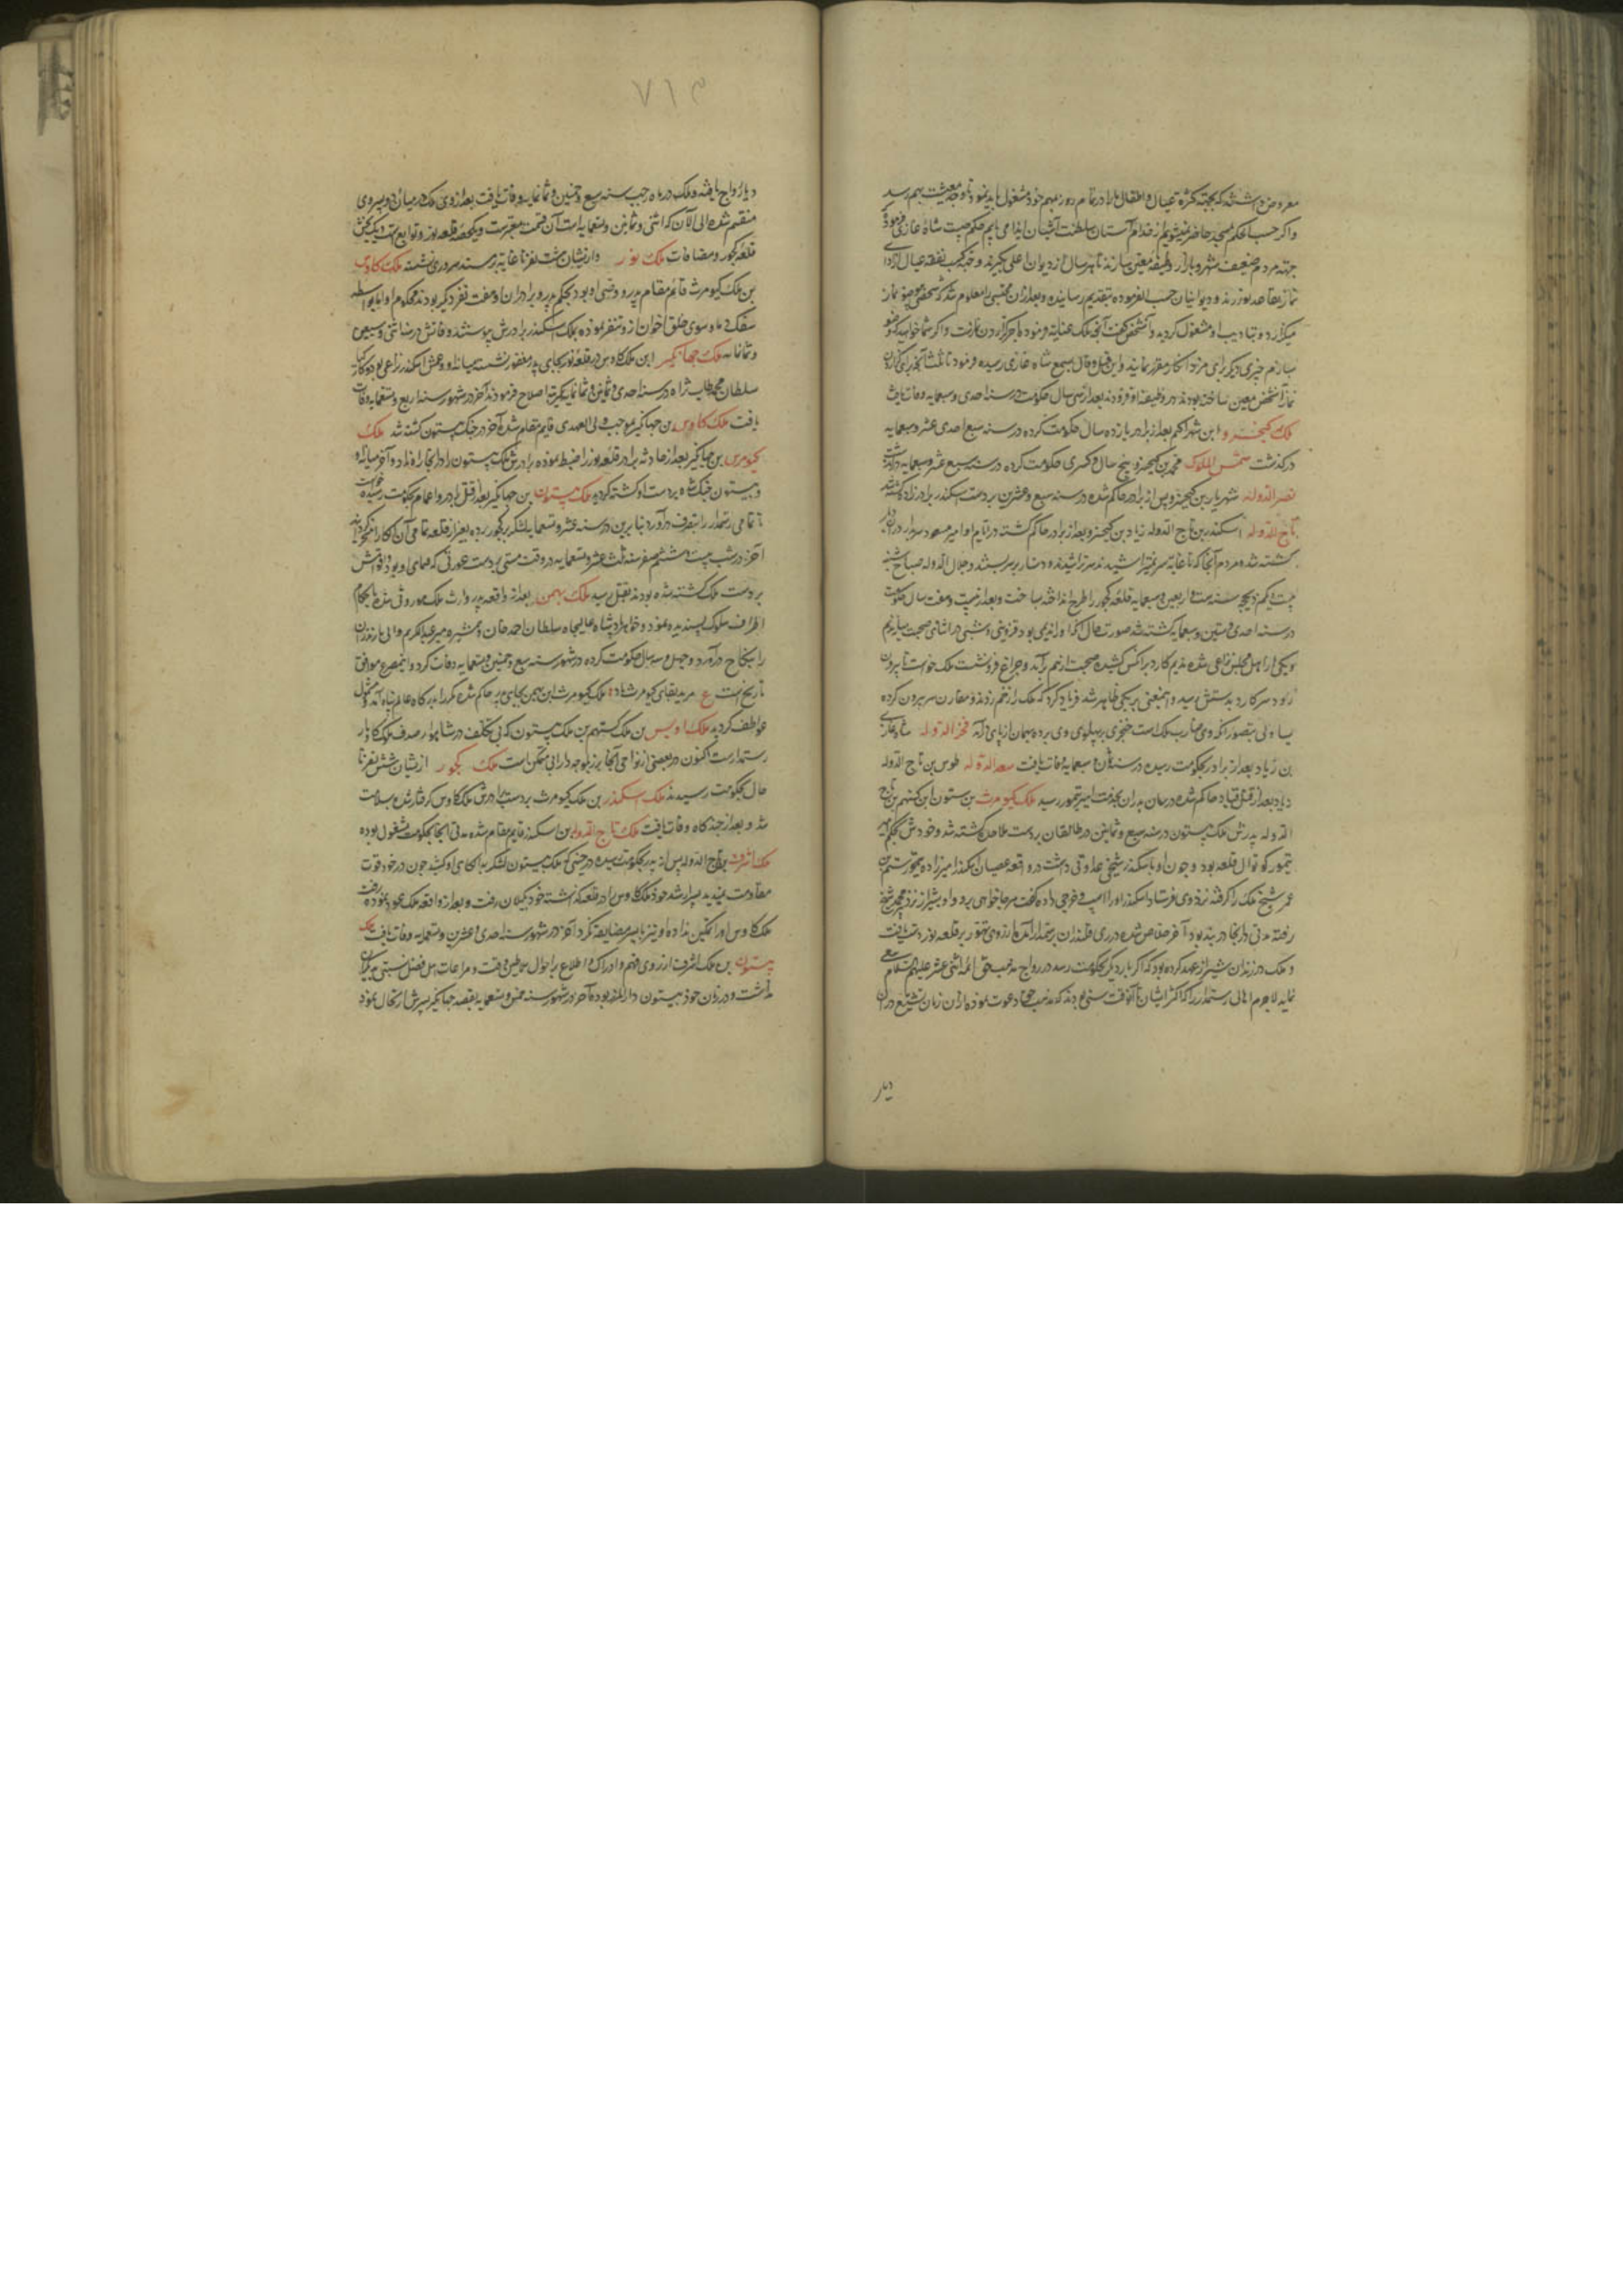 معروض داشتند که بجهته کثرة عیال و اطفال ما را در تمام روز بمهم خود مشغول باید بود تا وجه معیشت بهم رسد
و اگر حسب الحکم بمسجد حاضر نمیشویم از خدام آستان سلطنت آشیان ایذا می یابیم حکم چیست شاه غازی فرمود
جهته مردم ضعیف شهر و بازار وظیفه معین سازند تا هر سال از دیوان اعلی بگیرند و کسب نفقه عیال
نماز تقاعد نورزند و دیوانیان حسب الفرموده بتقدیم رسانیده و بعد از آن محتسبی را معلوم شد که شخصی بی وضو نماز
میگزارد و بتادیب او مشغول گردید و آنشخص گفت آنچه ملک عنایت فرموده باجر گزاردن نمازست و اگر شما خواهید که وضو
سازم چیزی دیگر برای مزد آنکار مقرر نمایند و این قیل و قال بسمع شاه غازی رسیده فرمود تا ثلث آنچه برای گزاردن
نماز آنشخص معین ساخته بودند بر وظیفه او افزودند بعد از سی سال حکومت در سنه احدی و سبعمایه وفات یافت
ملک کیخسرو ابن شهراکیم بعد از برادر یازده سال حکومت کرده در سنه احدی عشر و سبعمایه
درگذشت شمس الملوک محمد بن کیخسرو پنج سال و کسری حکومت کرده در سنه سبع عشر و سبعمایه
نصر الدوله شهریار بن کیخسرو پس از برادر حاکم شده در سنه سبع و عشرین بر دست اسکندر برادرزاده کشته شد
تاج الدوله زیار بن کیخسرو بعد از برادر حاکم گشته در ایام او امیر مسعود سربدار در آن دیار
کشته شد و مردم آنجا که تا غایة سر نمیتراشیدند سر تراشیده دستار بر سر بستند و جلال الدوله صباح شنبه
بیست یکم ذیحجه سنه ست و اربعین و سبعمایه قلعه کجور را طرح انداخته ساخت و بعد از بیست و هفت سال حکومت
در سنه احدی و ستین و سبعمایه کشته شد صورت حال آنکه او را ندیمی بود قزوینی و شبی در اثنای صحبت میان ندیم
و یکی از اهل مجلس نزاعی شده ندیم کارد بر آنکس کشیده صحبت از هم برآمد و چراغ فرونشست ملک خواست تا بیرون
رود سر کارد بدستش رسید و اینمعنی بر یکی ظاهر شد فریاد کرد که ملک را زخم زدند و مقارن سر بیرون کرده
یساولی بتصور آنکه وی ضارب ملک است خنجری بر پهلوی وی زده همان از پای درآمد فخر الدوله شاه غازی
بن زیار بعد از برادر بحکومت رسیده در سنه ثمانین و سبعمایه وفات یافت سعد الدوله طوس بن تاج الدوله
زیار بعد از قتل قباد حاکم شده در میان پدران بخدمت امیر تیمور رسید ملک کیومرث بن بیستون ابن گستهم بن تاج
الدوله پدرش ملک بیستون در سنه سبع و ثمانین در طالقان بر دست ملاحده کشته شد و خودش بحکم
تیمور کوتوال قلعه بود و چون او با اسکندر شیخی عداوتی داشت در واقعه عصیان اسکندر امیرزاده تیمور رستم بن
عمر شیخ ملک را گرفته نزد وی فرستاد اسکندر او را اسب و خرجی داده گفت هر جا خواهی برو و او بشیراز نزد میرزا پیر محمد
رفته مدتی در آنجا در بند بود آخر خلاص شده در زی قلندران برستمدار آمد و از روی تهور بر قلعه نور دست یافت
و ملک در زندان شیراز عهد کرده بود که اگر بار دیگر بحکومت رسد در رواج مذهب حق ائمه اثنی عشر علیهم السلام سعی
نماید لاجرم اهالی رستمدار را که اکثر ایشان تا آنوقت سنی بودند که مذهب حق دعوت نموده از آن زمان تشیع در آن
دیار
٧١٣
دیار رواج یافته و ملک در ماه رجب سنه سبع و خمسین و ثمانمایه وفات یافت بعد از وی ملک در میان دو پسر وی
منقسم شده الی الآن که اثنی و ثمانین و تسعمایه است آن قسمت معتبرست و یکحصه قلعه نور و توابع است و یک بخش
قلعه کجور و مضافات ملک نور و از ایشان هشت نفر تا غایة بر مسند سروری نشسته ملک کاوس
بن ملک کیومرث قائم مقام پدر و وصی او بود بحکم پدر و برادران و هفت نفر دیگر بودند محکوم او اما بواسطه
سفک دماء و سوی خلق اخوان از و تنفر نموده بملک اسکندر برادرش پیوستند وفاتش در سنه اثنی و سبعین
و ثمانمایه ملک جهانگیر ابن ملک کاوس در قلعه نور بجای پدر مغفور نشست میانه او و عمش اسکندر نزاعی بود و کارکیا
سلطان محمد طاب ثراه در سنه احدی و ثمانین و ثمانمایه اصلاح فرمودند آخر در شهور سنه اربع و تسعمایه وفات
یافت ملک کاوس بن جهانگیر بموجب ولی العهدی قایم مقام شده آخر در جنگ بیستون کشته شد ملک
کیومرث بن جهانگیر بعد از حادثه برادر قلعه نور را ضبط نموده برادرش ملک بیستون را در آنجا راه نداد و آخر میانه او
و بیستون جنگ شده بر دست او کشته گردید ملک بیستون بن جهانگیر بعد از قتل برادر و اعمام بحکومت رسیده خواست
تا تمامی رستمدار را بتصرف درآورد بنابرین در سنه عشر و تسعمایه لشکر بر کجور برده بغیر از قلعه تمامی آن الکا را مسخر گردانید
آخر در شب بیست و ششم صفر سنه ثلث عشر و تسعمایه در وقت مستی بر دست عورتی که همای او بود و اقوامش
بر دست ملک کشته شده بودند بقتل رسید ملک بهمن بعد از واقعه پدر وارث ملک موروثی شده با حکام
اطراف سلوک پسندیده نمود و خواهر پادشاه عالیجاه سلطان احمد خان و همشیره میر عبدالکریم والی مازندران
را بنکاح درآورد و چهل و سه سال حکومت کرده در شهور سنه سبع و خمسین و تسعمایه وفات کرد و اینمصرع موافق
تاریخ است ع مزید بقای کیومرث باد ملک کیومرث ابن بهمن بجای پدر حاکم شده مکرر بدرگاه عالم پناه آمد مشمول
عواطف گردید ملک اویس بن ملک گستهم بن ملک بیستون که بی تکلف در شاهوار صدف ملوک کاوباره
رستمدارست اکنون در بعضی از نواحی آنجا بر زیلوجه دارائی متمکن است ملک کجور از ایشان شش نفر تا
حال بحکومت رسیدند ملک اسکندر بن ملک کیومرث بر دست برادرش ملک کاوس گرفتار شده بسلامت
شد و بعد از چندگاه وفات یافت ملک تاج الدوله بن اسکندر قایم مقام شده مدتی آنجا بحکومت مشغول بوده
ملک اشرف بن تاج الدوله پس از پدر بحکومت رسیده در حینی که ملک بیستون لشکر به الکای او کشید چون در خود قوت
مقاومت ندید پسر ارشد خود ملک کاوس را در قلعه گذاشته خود بگیلان رفت و بعد از واقعه ملک عود نموده
ملک کاوس او را تمکین نداده او نیز با پسر مضایقه نکرد آخر در شهور سنه احدی و عشرین و تسعمایه وفات یافت ملک
بیستون بن ملک اشرف از روی فهم و ادراک و اطلاع بر احوال سلاطین وقت و مراعات اهل فضل نسبتی بدیگران
نداشت و در زمان خود بیستون دار الملک بوده آخر در شهور سنه خمس و تسعمایه بقصد جهانگیر پسرش ارتحال نمود